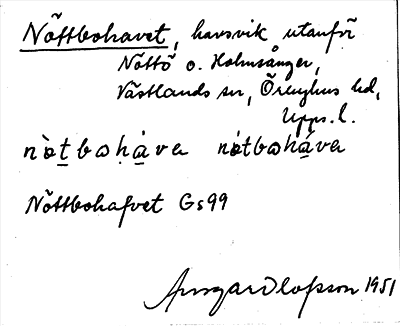 Nöttbohavet, havsvik utanför
Nöttö o. Holmsånger,
Västlands sn, Örbyhus hd,
Upps. l.
nòt̲bɷḥȧ̲ve nȯ́tbɷhá̲ve
Nöttbohafvet Gs99
Ansgar Olofsson 1951